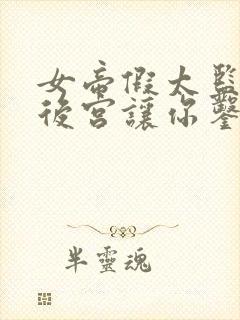 女帝假太監
後宮讓你鑿
半靈魂